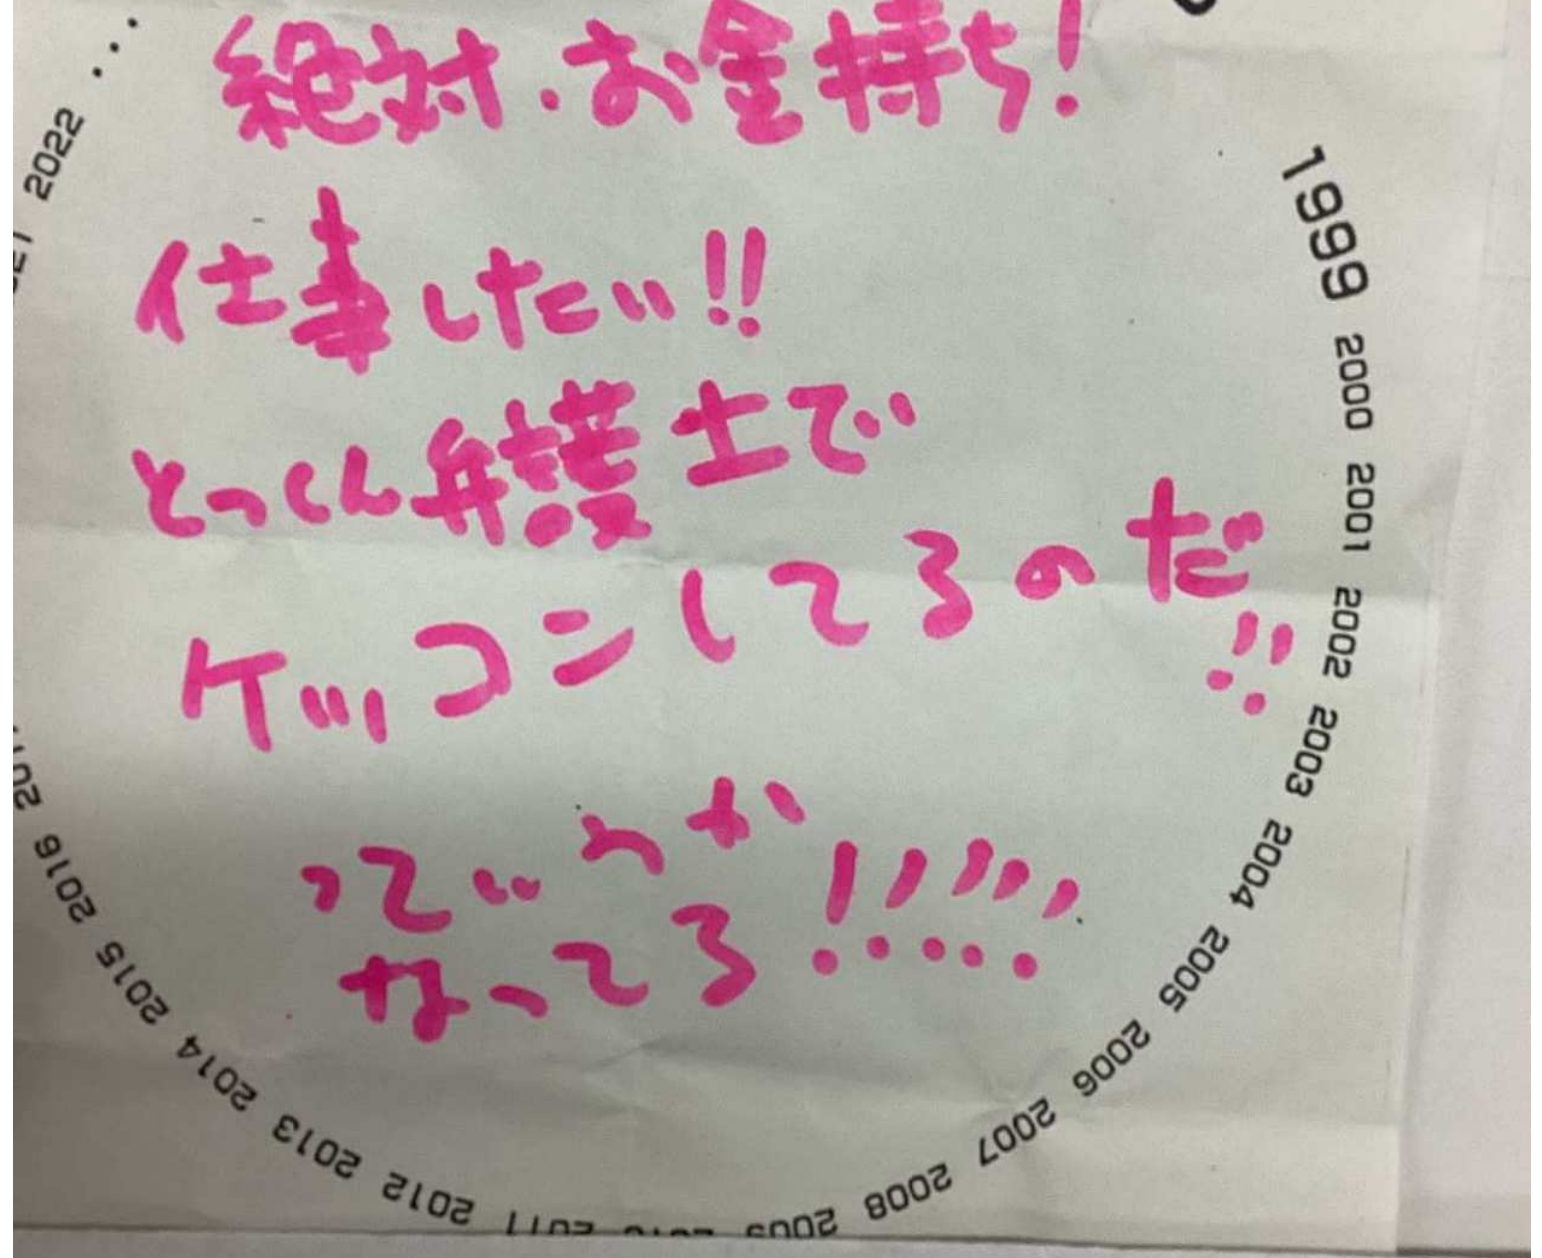 絶対・お金持ち!
仕事したい!!
とっくん弁護士で
ケッコンしてるのだ!!
っていうか!!!!!
なってる
1999 2000 2001 2002 2003 2004 2005 2006 2007 2008 2009
2011 2012 2013 2014 2015 2016
2022 ...